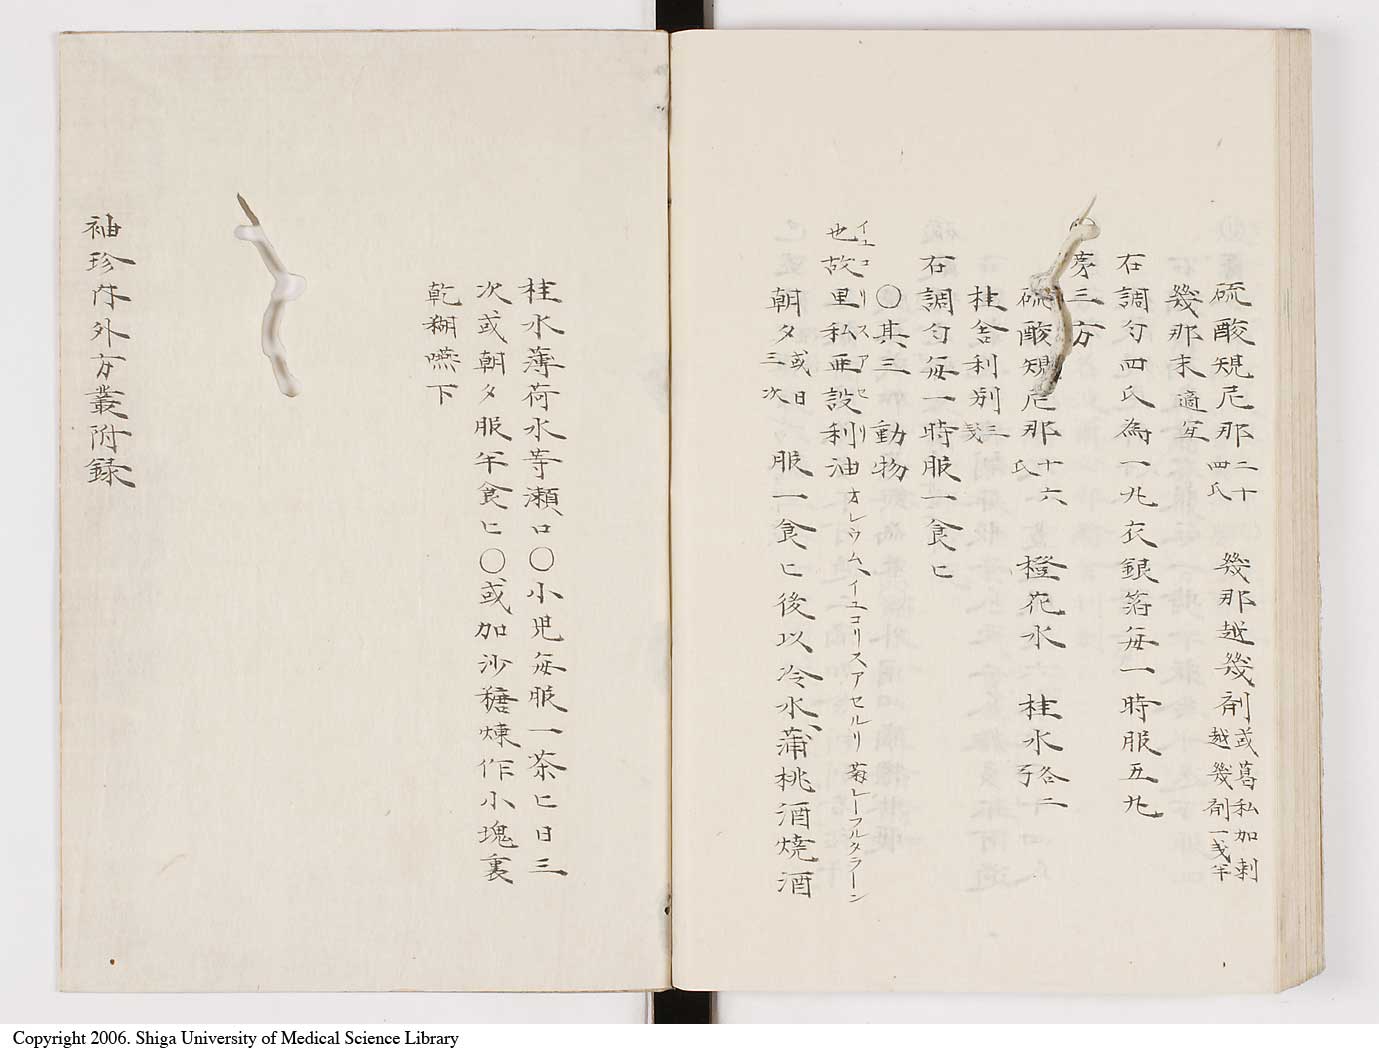 硫酸規尼那二十四氏 幾那越幾剤或葛私加剌越幾剤一戔半
幾那末適宜
右調匀四氏為一丸衣銀箔毎一時服五丸
第三方
硫酸規尼那十六氏 橙花水 桂水各二
桂舎利別三戔
右調匀毎一時服一食匕
〇其三動物
也故里私亜設利油 オレウム、イユコリスアセルリ 菊レーフルタラーン
イユコリスアセリ
朝夕或日三次服一食匕後以冷水、蒲桃酒焼酒
桂水薄荷水等瀬口〇小児毎服一茶匕日三
次或朝夕服半食匕〇或加沙糖煉作小塊裏
乾糊嚥下
袖珍内外方叢附録
Copyright 2006. Shiga University of Medical Science Library